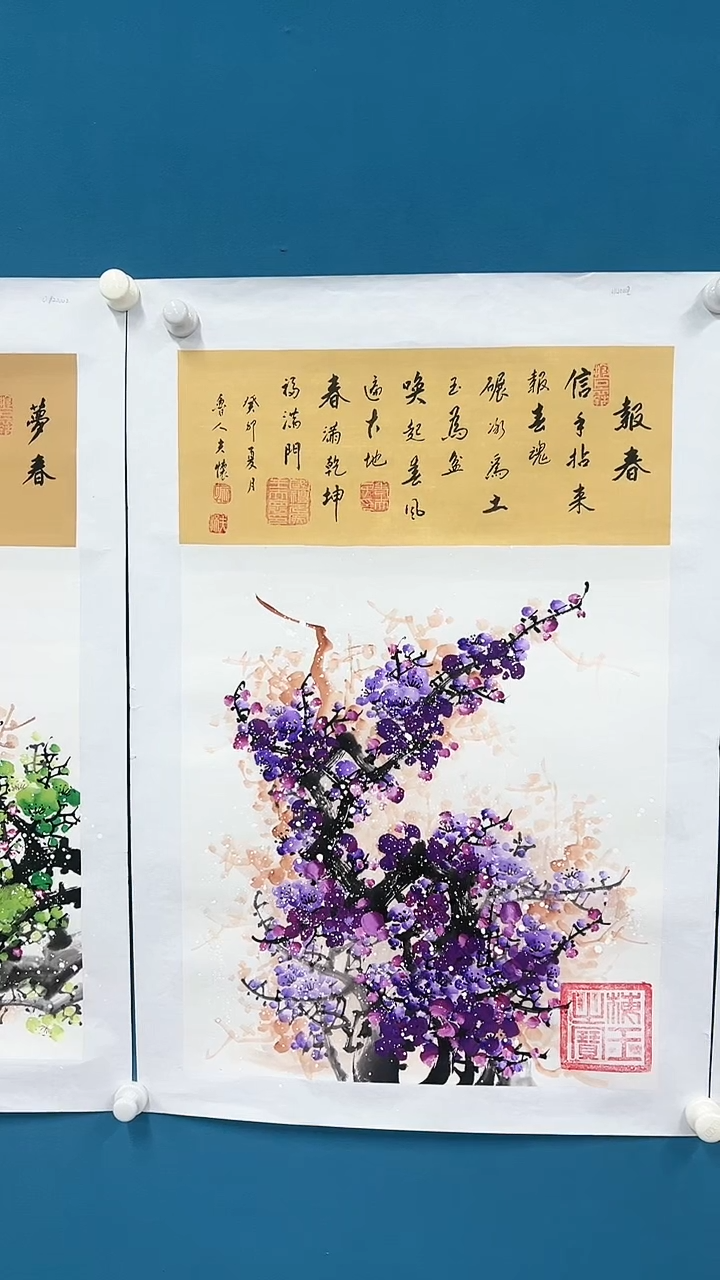 報春
信手拈来
報春魂
碾冰為土
玉為盆
喚起春風
遍大地
春滿乾坤
福滿門
癸卯夏月
魯人
梅王之寶
夢春